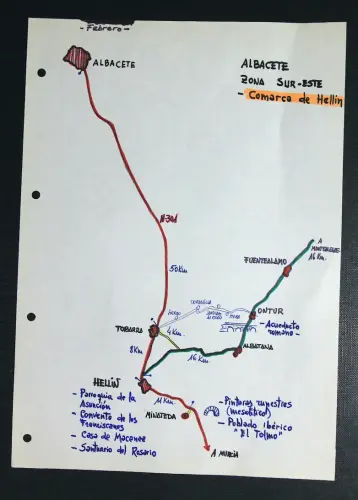 - Febrero -
ALBACETE
ALBACETE
ZONA SUR-ESTE
- Comarca de Hellín
N-301
50Km
A
16 Km.
FUENTEALAMO
ONTUR
- Acueducto
romano -
TOBARRA
4Km.
ALBATANA
8Km
16 Km
HELLÍN
- Parroquia de la
Asunción
- Convento de los
Franciscanos
- Casa de Macanaz
- Santuario del Rosario
11 Km
MINATEDA
- Pinturas rupestres
(mesolítico)
- Poblado Ibérico
"El Tolmo"
A MURCIA